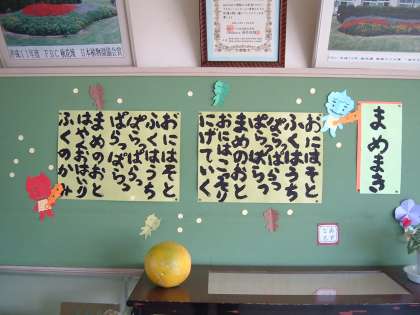 まめまき
おにはそと
ふくはうち
ぱらっぱらっ
ぱらっぱらっ
まめのおと
おにはこっそり
にげていく
おにはそと
ふくはうち
ぱらっぱらっ
ぱらっぱらっ
まめのおと
はやくおはいり
ふくのかみ